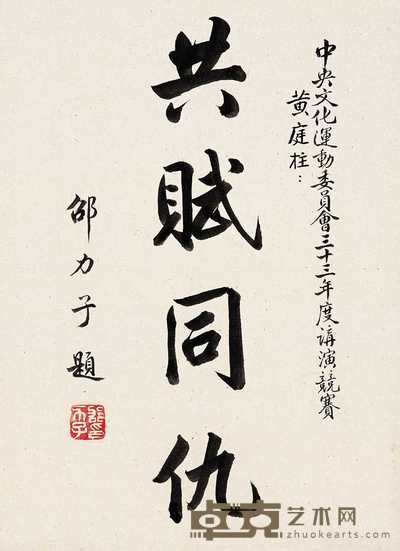 中央文化運動委員會三十三年度講演競賽
黄庭柱：
共賦同仇
邵力子題
卓克艺术网
zhuokearts.com